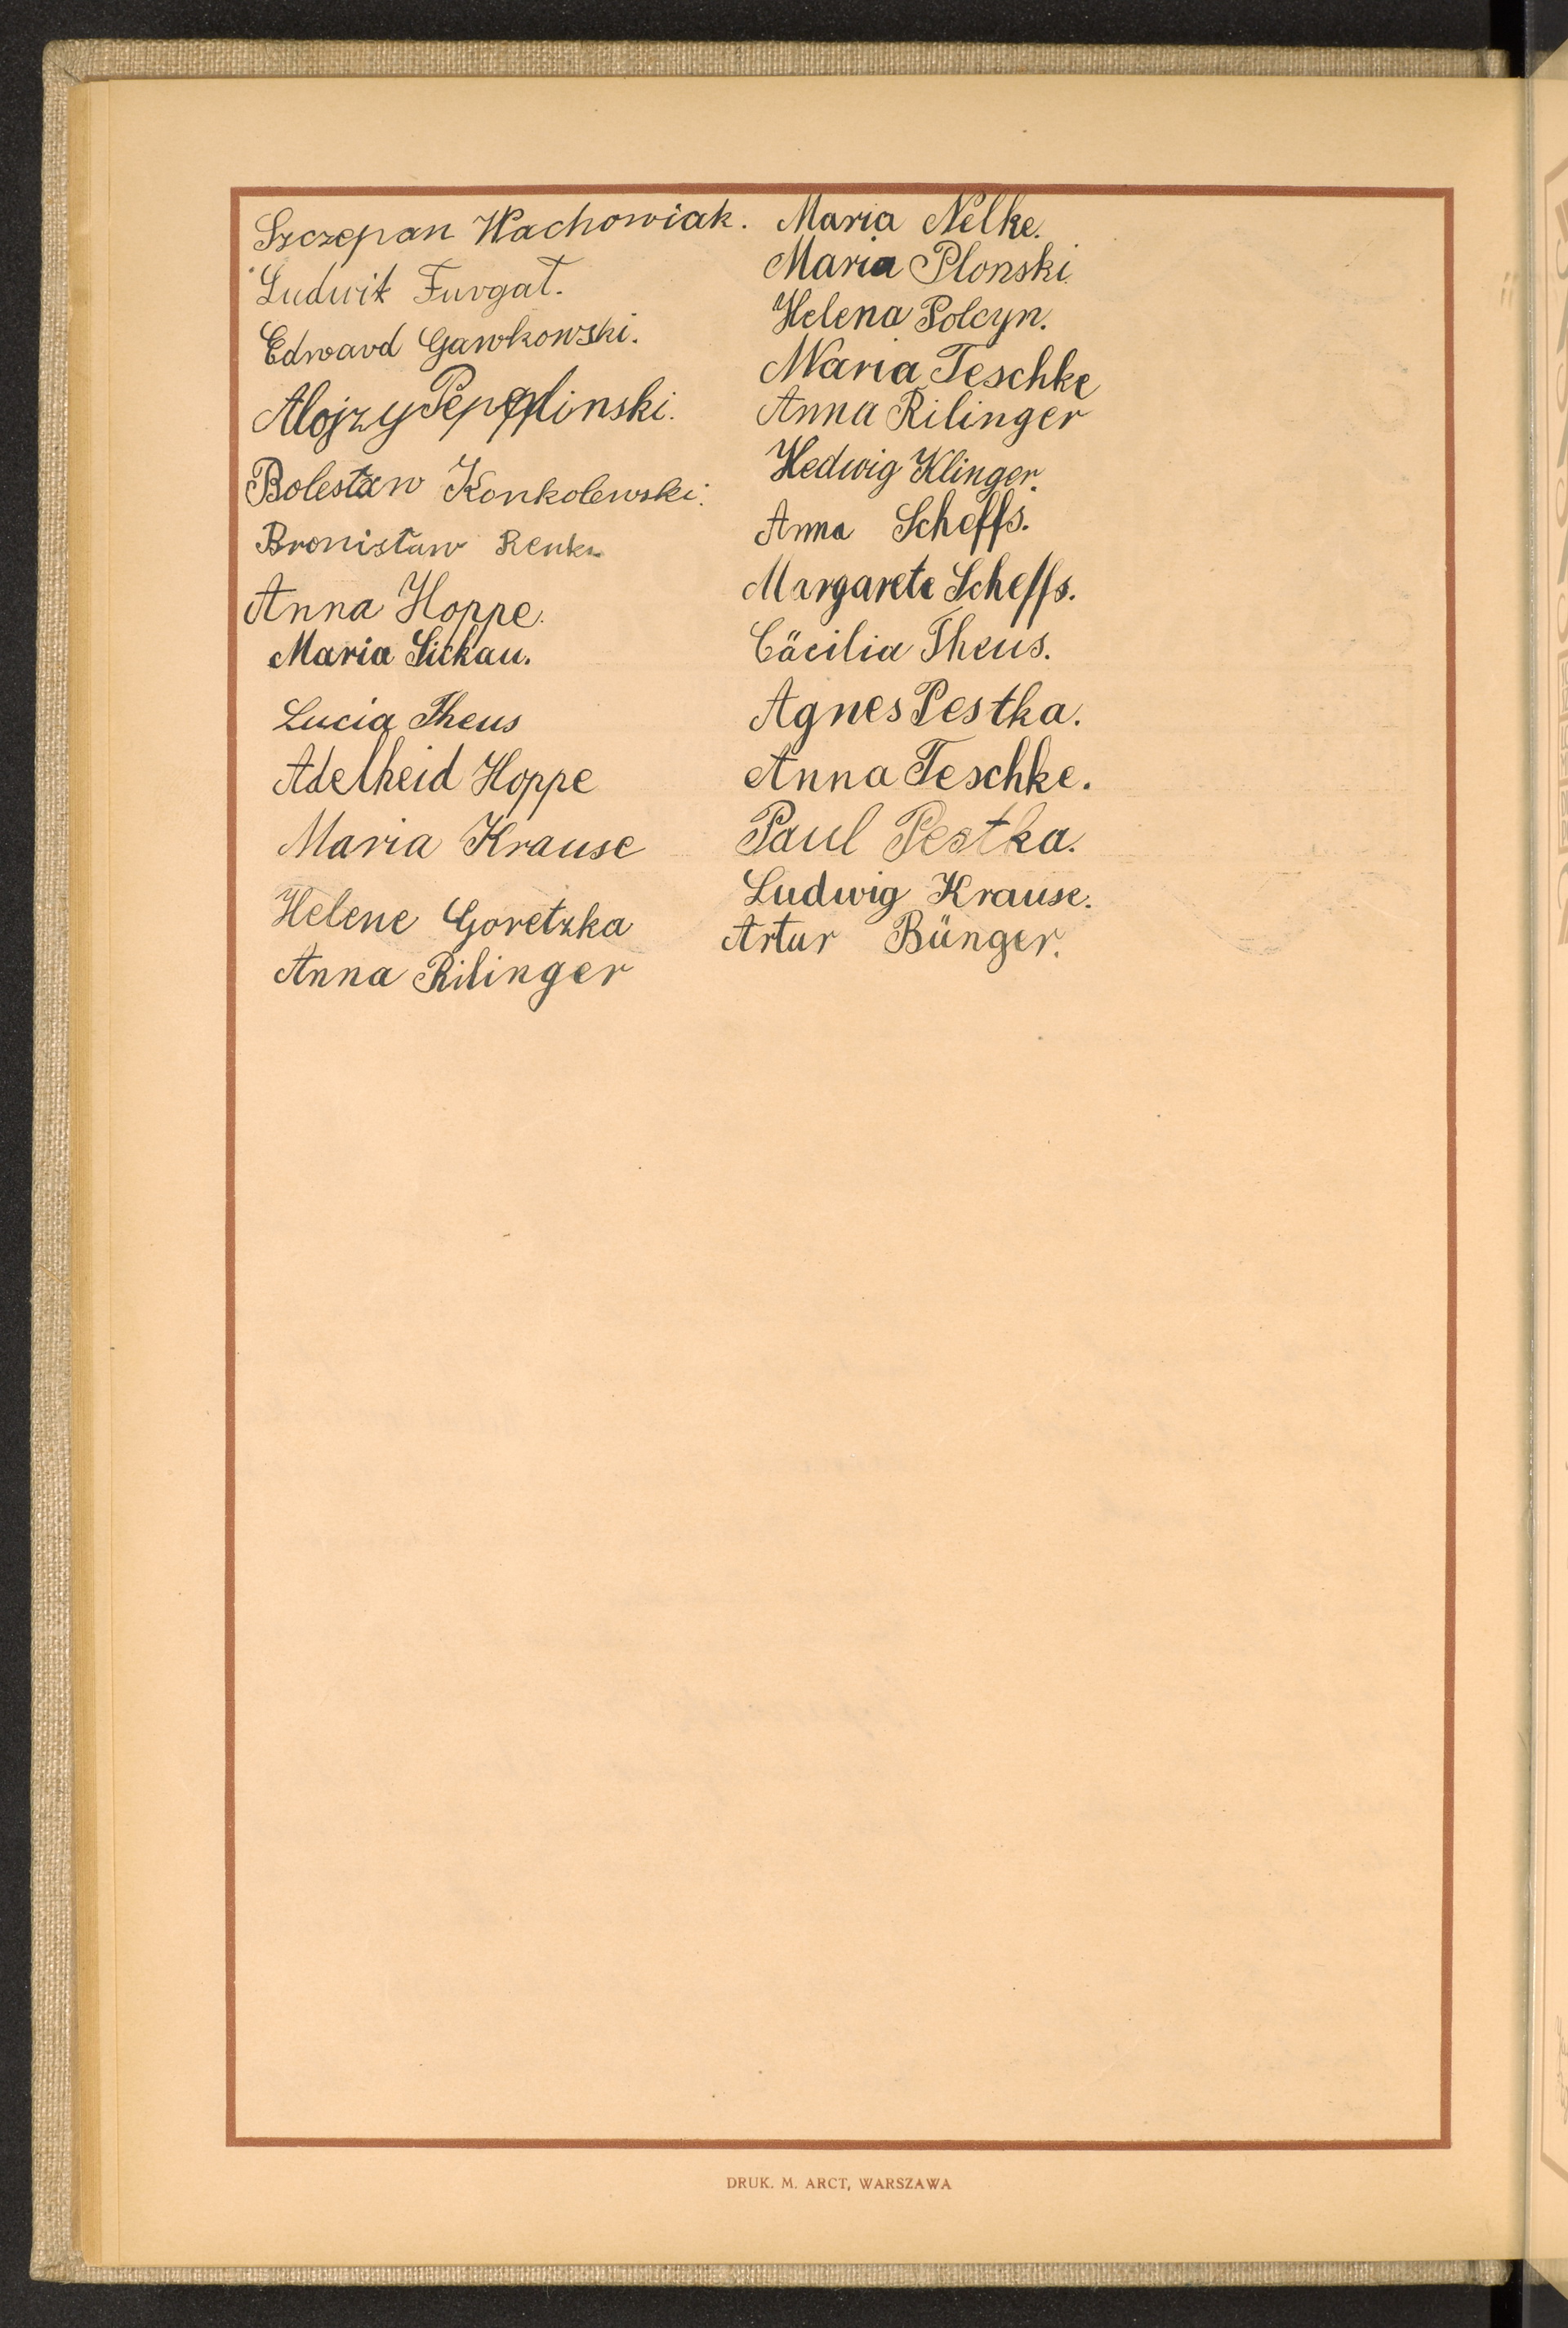 Szczepan Wachowiak.
Ludwik Furgał.
Edward Gawkowski.
Alojzy Pepplinski.
Bolesław Konkolewski.
Bronisław
Anna Hoppe.
Maria Lickau.
Lucia Theus
Adelheid Hoppe
Maria Krause
Helene Goretzka
Anna Rilinger
Maria Nelke.
Maria Plonski.
Helena Polcyn.
Maria Teschke
Anna Rilinger
Hedwig Klinger.
Anna Scheffs.
Margarete Scheffs.
Cäcilia Theus.
Agnes Pestka.
Anna Teschke.
Paul Pestka.
Ludwig Krause.
Artur Bünger.
DRUK. M. ARCT, WARSZAWA